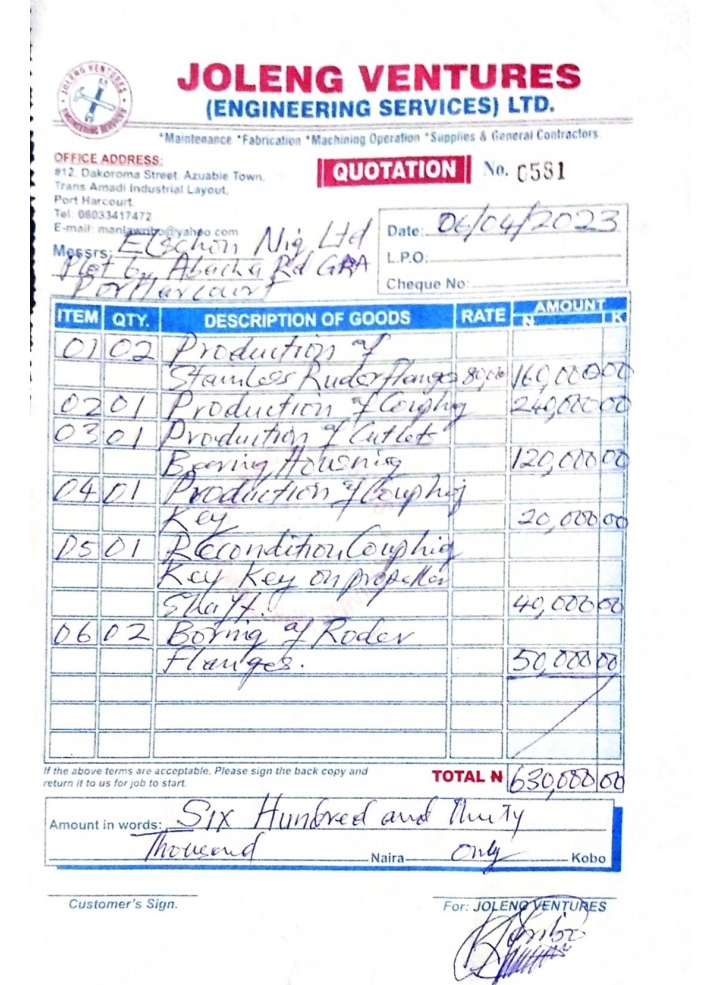 JOLENG VENTURES
ENGINEERING SERVICES
JOLENG VENTURES
(ENGINEERING SERVICES) LTD.
*Maintenance *Fabrication *Machining Operation *Supplies & General Contractors.
OFFICE ADDRESS:
#12, Dakoroma Street, Azuabie Town,
Trans Amadi Industrial Layout,
Port Harcourt.
Tel: 08033417472
E-mail: @yahoo.com
QUOTATION No. 0581
Messrs: Elschon Nig Ltd
Plot 6, Abacha Rd GRA
PortHarcourt
Date: 06/04/2023
L.P.O.
Cheque No:
ITEM QTY. DESCRIPTION OF GOODS RATE AMOUNT
N K
01 02 Production of
Stainless Ruder flanges 80,000 160,000 00
02 01 Production of Coupling 240,000 00
03 01 Production of Outlet
Bearing Housing 120,000 00
04 01 Production of Coupling
Key 20,000 00
05 01 Recondition Coupling
Key Key on propeller
Shaft. 40,000 00
06 02 Boring of Roder
flanges. 50,000 00
If the above terms are acceptable. Please sign the back copy and
return it to us for job to start.
TOTAL N 630,000 00
Amount in words: Six Hundred and Thirty
Thousand Naira Only Kobo
Customer's Sign.
For: JOLENG VENTURES